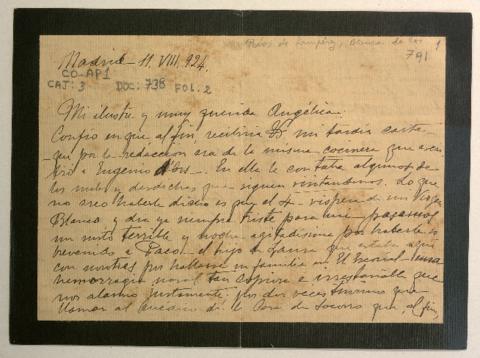 Ríos de Lampérez, Blanca de los
1
791
Madrid - 11. VIII. 924.
CO-AP1
CAJ: 3 DOC: 738 FOL: 2
Mi ilustre y muy querida Angélica:
Confío en que al fin, recibiría V mi tardía carta
que por la redacción era de la misma cocinera que
a Eugenio d'Ors. En ella le contaba algunos de
los males y desdichas que siguen Lo que
no creo haberle dicho es que el 4 - víspera de mi Virgen
Blanca y día ya siempre triste para mí - pasamos
un susto terrible y noche agitadísima por haberle
a Paco - el hijo de Laura que estaba aquí
con nosotras por hallarse su familia en El Escorial - una
hemorragia nasal tan copiosa e irrestañable que
nos alarmó justamente; por dos veces tuvimos que
llamar al de la Casa de Socorro que, al fin,